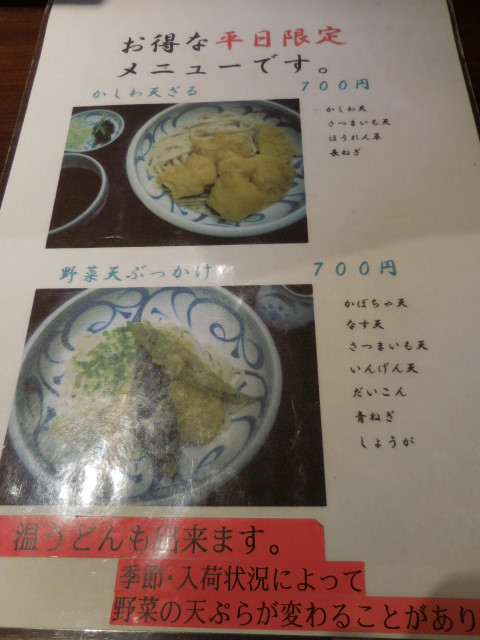 お得な平日限定
メニューです。
かしわ天ざる 700円
かしわ天
さつまいも天
ほうれん草
長ねぎ
野菜天ぶっかけ 700円
かぼちゃ天
なす天
さつまいも天
いんげん天
だいこん
青ねぎ
しょうが
温うどんも出来ます。
季節・入荷状況によって
野菜の天ぷらが変わることがあり